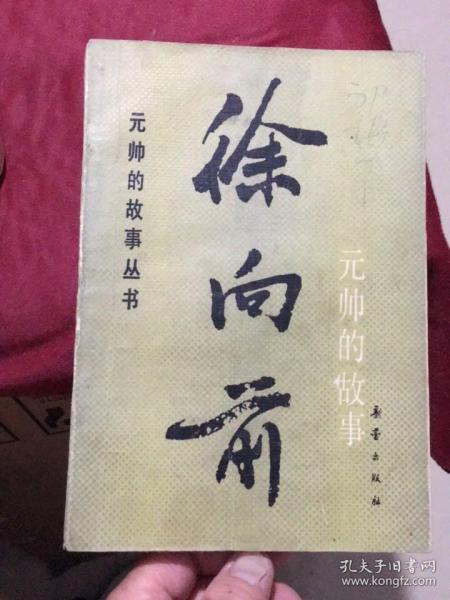 元帅的故事丛书
徐向前
元帅的故事
新蕾出版社
孔夫子旧书网
www.kongfz.com